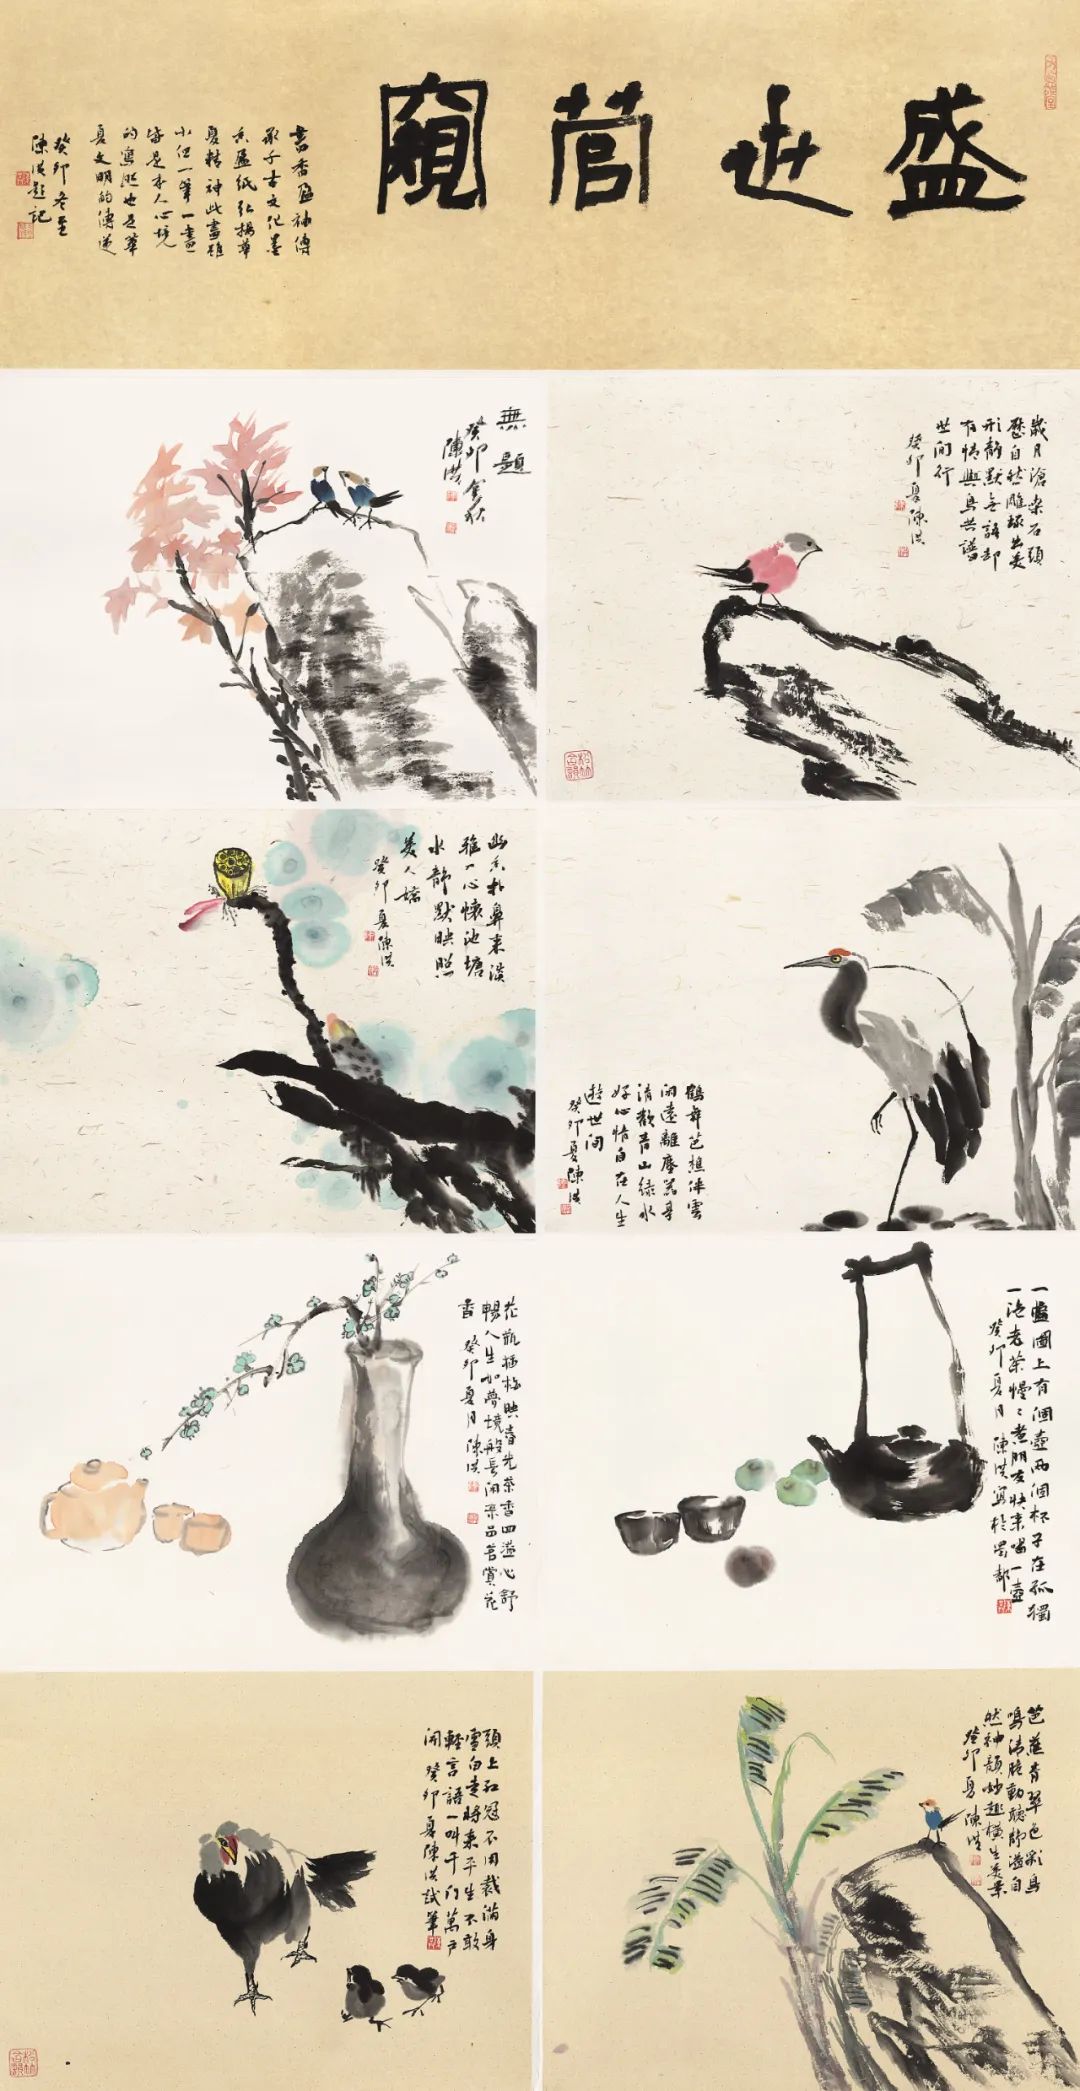 盛世管窺
書香盈袖傳
承千古文化墨
香盈紙弘揚華
夏精神此畫雖
小但一筆一畫
皆是本人心境
的寫照也是華
夏文明的傳遞
癸卯冬至
陳洪題記
無題
癸卯
陳洪
歲月滄桑石頭
歷自然雕琢出美
形靜默無語卻
有情與鳥共譜
世間行
癸卯夏陳洪
幽香扑鼻來淡
雅入心懷池塘
水靜默映照
美人
癸卯夏陳洪
鶴舞芭蕉伴雲
閑遠離塵囂尋
清歡青山綠水
好心情自在人生
遊世間
癸卯夏陳洪
花瓶插梅映春光茶香四溢心舒
暢人生如夢境般長閑來品茗賞花
香
癸卯夏月陳洪
一盤圖上有個壺兩個杯子在孤獨
一泡老茶慢々煮朋友快來喝一壺
癸卯夏月陳洪寫於蜀都
頭上紅冠不用裁滿身
雪白走將來平生不敢
輕言語一叫千門萬戶
開
癸卯夏陳洪試筆
芭蕉青翠色彩鳥
鳴清脆動聽飾溢自
然神韻妙趣橫生美景
癸卯夏陳洪